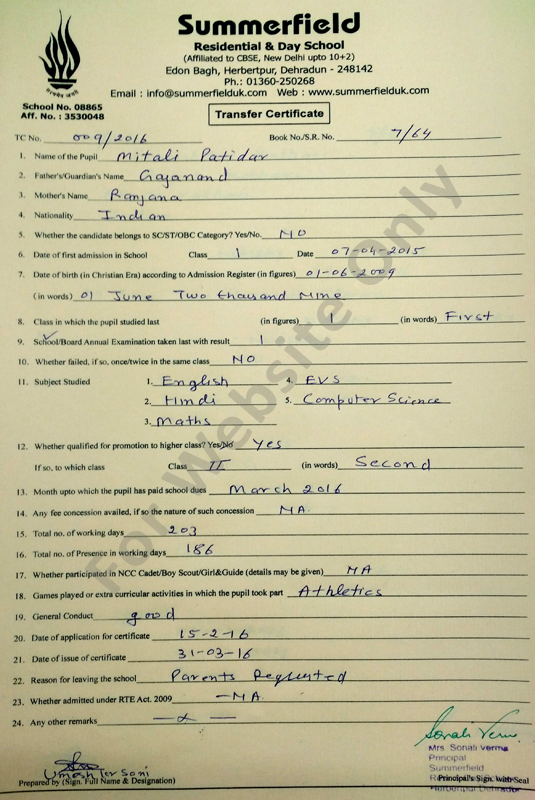 Summerfield
Residential & Day School
(Affiliated to CBSE, New Delhi upto 10+2)
Edon Bagh, Herbertpur, Dehradun - 248142
Ph.: 01360-250268
Email : info@summerfielduk.com Web : www.summerfielduk.com
School No. 08865
Aff. No. : 3530048
Transfer Certificate
TC No. 009/2016 Book No./S.R. No. 7/64
1. Name of the Pupil Mitali Patidar
2. Father's/Guardian's Name Gajanand
3. Mother's Name Ranjana
4. Nationality Indian
5. Whether the candidate belongs to SC/ST/OBC Category? Yes/No. NO
6. Date of first admission in School Class 1 Date 07-04-2015
7. Date of birth (in Christian Era) according to Admission Register (in figures) 01-06-2009
(in words) 01 June Two thousand Nine
8. Class in which the pupil studied last (in figures) 1 (in words) First
9. School/Board Annual Examination taken last with result 1
10. Whether failed, if so, once/twice in the same class NO
11. Subject Studied 1. English 4. EVS
2. Hindi 5. Computer Science
3. Maths
12. Whether qualified for promotion to higher class? Yes/No Yes
If so, to which class Class II (in words) Second
13. Month upto which the pupil has paid school dues March 2016
14. Any fee concession availed, if so the nature of such concession NA
15. Total no. of working days 203
16. Total no. of Presence in working days 186
17. Whether participated in NCC Cadet/Boy Scout/Girl&Guide (details may be given) NA
18. Games played or extra curricular activities in which the pupil took part Athletics
19. General Conduct good
20. Date of application for certificate 15-2-16
21. Date of issue of certificate 31-03-16
22. Reason for leaving the school Parents Requsted
23. Whether admitted under RTE Act. 2009 -NA-
24. Any other remarks
Sonali Verma
Mrs. Sonali Verma
Principal
Summerfield
Umesh Jer Soni
Prepared by (Sign. Full Name & Designation) Principal's Sign. with Seal
Herbertpur, Dehradun
For Website Only